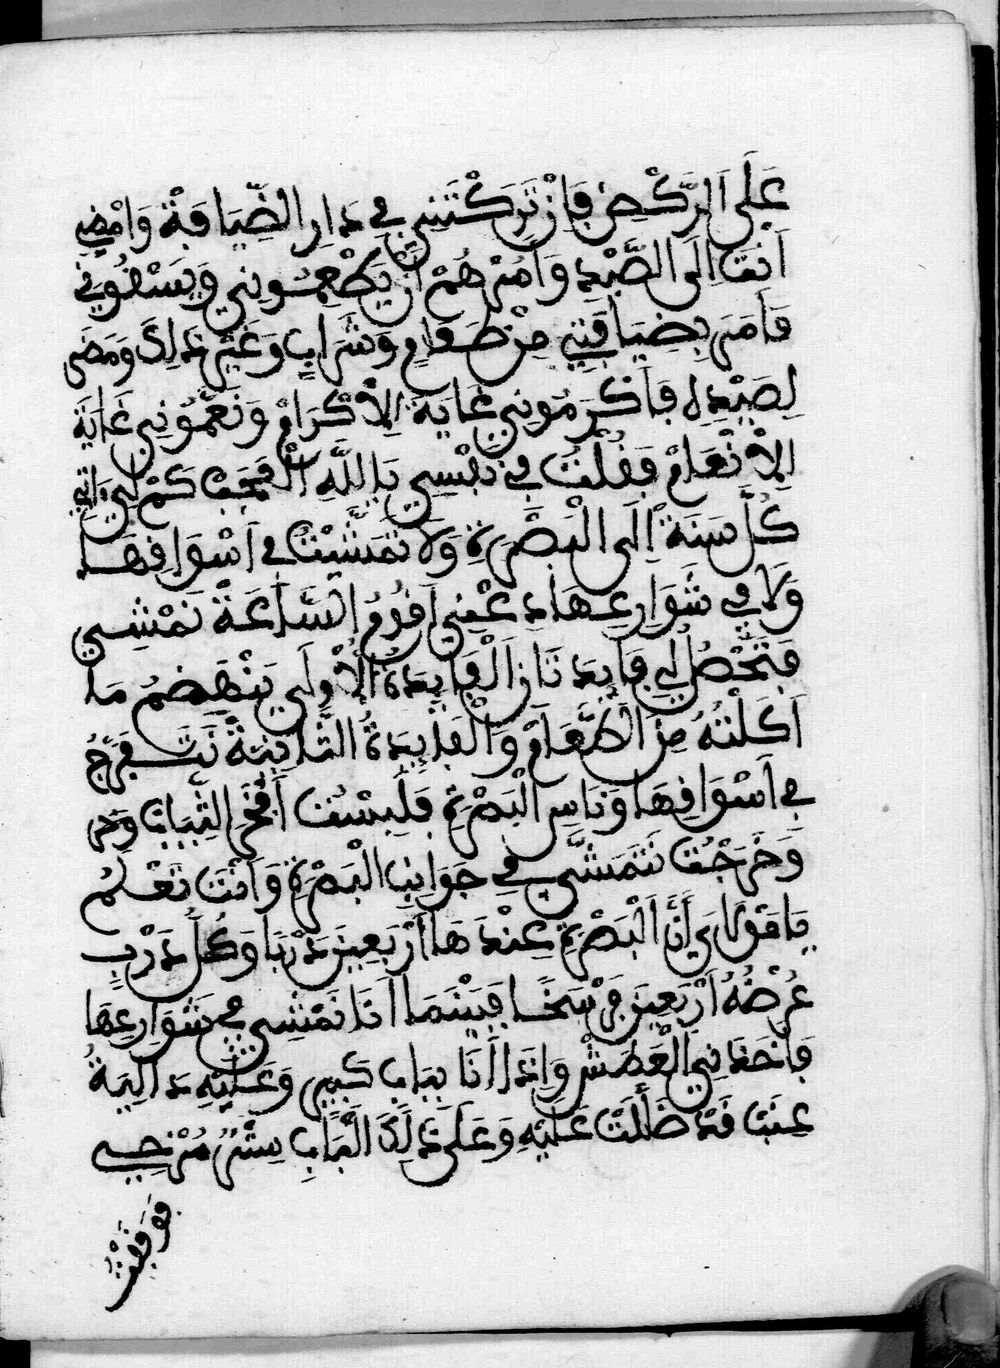 عَلَى الرَّكْضِ فَإِنْ تَرَكْتَنِي فِي دَارِ الضِّيَافَةْ وَامْضِي
اَنْتَ اِلَى الصَّيْدِ وَاَمُرْهُمْ اَنْ يَطْعِمُونِي وَيَسْقُونِي
فَاَمَرَ بِضِيَافَتِي مِنْ طَعَامٍ وَشَرَابٍ وَغَيْرِ ذَلِكَ وَمَضَى
لِصَيْدِهِ فَاَكْرَمُونِي غَايَةَ الِاكْرَامْ وَنَعَّمُونِي غَايَةَ
الِانْعَامْ فَقُلْتُ فِي نَفْسِي يَا لِلَّهِ الْعَجَبْ كَمْ لِي نَاتِي
كُلَّ سَنَةْ اِلَى الْبَصْرَةْ وَلَا تَمَشَّيْتُ فِي اَسْوَاقِهَا
وَلَا فِي شَوَارِعِهَا دَعْنِي اَقُومُ السَّاعَةْ نَمْشِي
فَتَحْصُلُ لِي فَايِدَتَانْ اَلْفَايِدَةُ الْاُولَى يَنْهَضِمُ مَا
اَكَلْتُهُ مِنَ الطَّعَامْ وَالْفَايِدَةُ الثَّانِيَةْ نَتَفَرَّجُ
فِي اَسْوَاقِهَا وَنَاسِ الْبَصْرَةْ فَلَبِسْتُ اَفْخَرَ الثِّيَابْ وَخر
وَخَرَجْتُ نَتَمَشَّى فِي جَوَانِبِ الْبَصْرَةْ وَاَنْتَ تَعْلَمُ
يَا مَوْلَايَ اَنَّ الْبَصْرَةْ عِنْدَهَا اَرْبَعِينَ دَرْبَا وَكُلُّ دَرْبٍ
عُرْضُهُ اَرْبَعِينَ فَرْسَخًا فَبَيْنَمَا اَنَا نَمْشِي فِي شَوَارِعِهَا
فَاَخَذَنِي الْعَطَشْ وَاِذَا اَنَا بِبَابٍ كَبِيرٍ وَعَلَيْهِ دَالِيَةُ
عِنَبْ قَدْ ضَلَّلَتْ عَلَيْهِ وَعَلَى ذَلِكَ الْبَابِ سِتْرٌ مُرْخِي
فَوَقَفْتُ